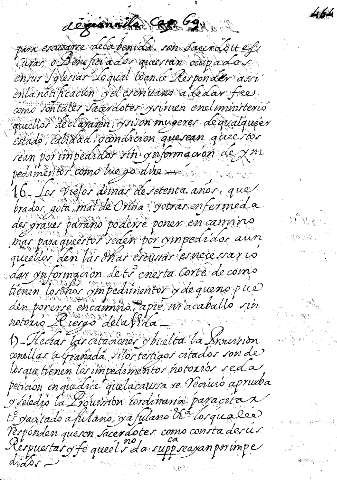 de granada Cap 69. 464
para escusarse de la benida, son Sacerdotes
Curas, o Beneficiados que estan ocupados
en sus Iglesias lo qual bean Responder assi
en la notificacion y el escriuano a de dar fee
como son tales Sacerdotes y siruen en el ministerio
que ellos declararon, y si son mugeres de qualquier
estado, calidad, y condicion que sean que estos
sean por impedidos sin ynformacion de ym
pedimentos como luego dire
16 Los Viejos de mas de setenta años, que
brados, gota, mal de Orina, y otras enfermeda
des graues para no poderse poner en camino
mas para que estos sean por ympedidos aun
que ellos den las dichas escusas es necessario
dar ynformacion de to en esta Corte de como
tienen los dichos ympedimentos y de que no pue
den ponerse en camino, a pie, ni a cauallo sin
notorio Riesgo de la Vida
17 Hechas las citaciones y buelta la Prouision
con ellas a Granada, si los testigos citados son de
los que tienen los impedimentos notorios se da
peticion en que dice que la causa se Reciuio a prueba
y se le dio la Prouision ordinaria para citar
tos y a citado a fulano, y a fulano los quales
Responden que son Sacerdotes como consta de sus
Respuestas y fe que el no da supca se ayan por impe
didos